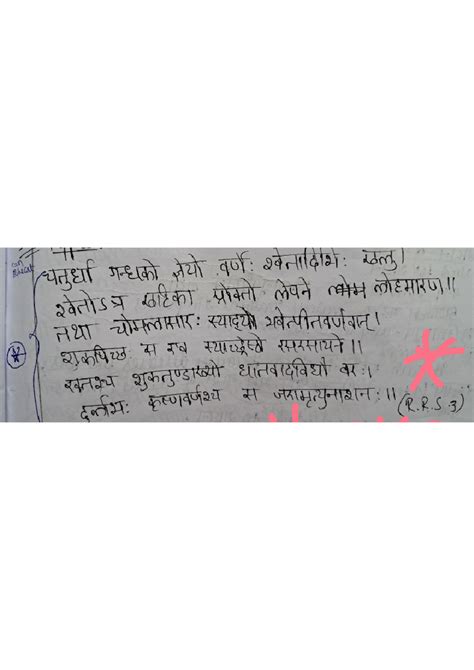 चतुर्धा गन्धको ज्ञेयो वर्णैः श्वेतादिभिः खलु।
श्वेतोऽत्र खटिका प्रोक्तो लेपने लोहमारण॥
तथा चामलासारः स्याद्यो भवेत्पीतवर्णवान्।
शुकपिच्छ स एव स्याच्छ्रेष्ठो रसरसायने॥
रक्तश्च शुकतुण्डाख्यो धातुवादविधौ वरः।
दुर्लभः कृष्णवर्णश्च स जरामृत्युनाशनः॥ (R.R.S. 3)